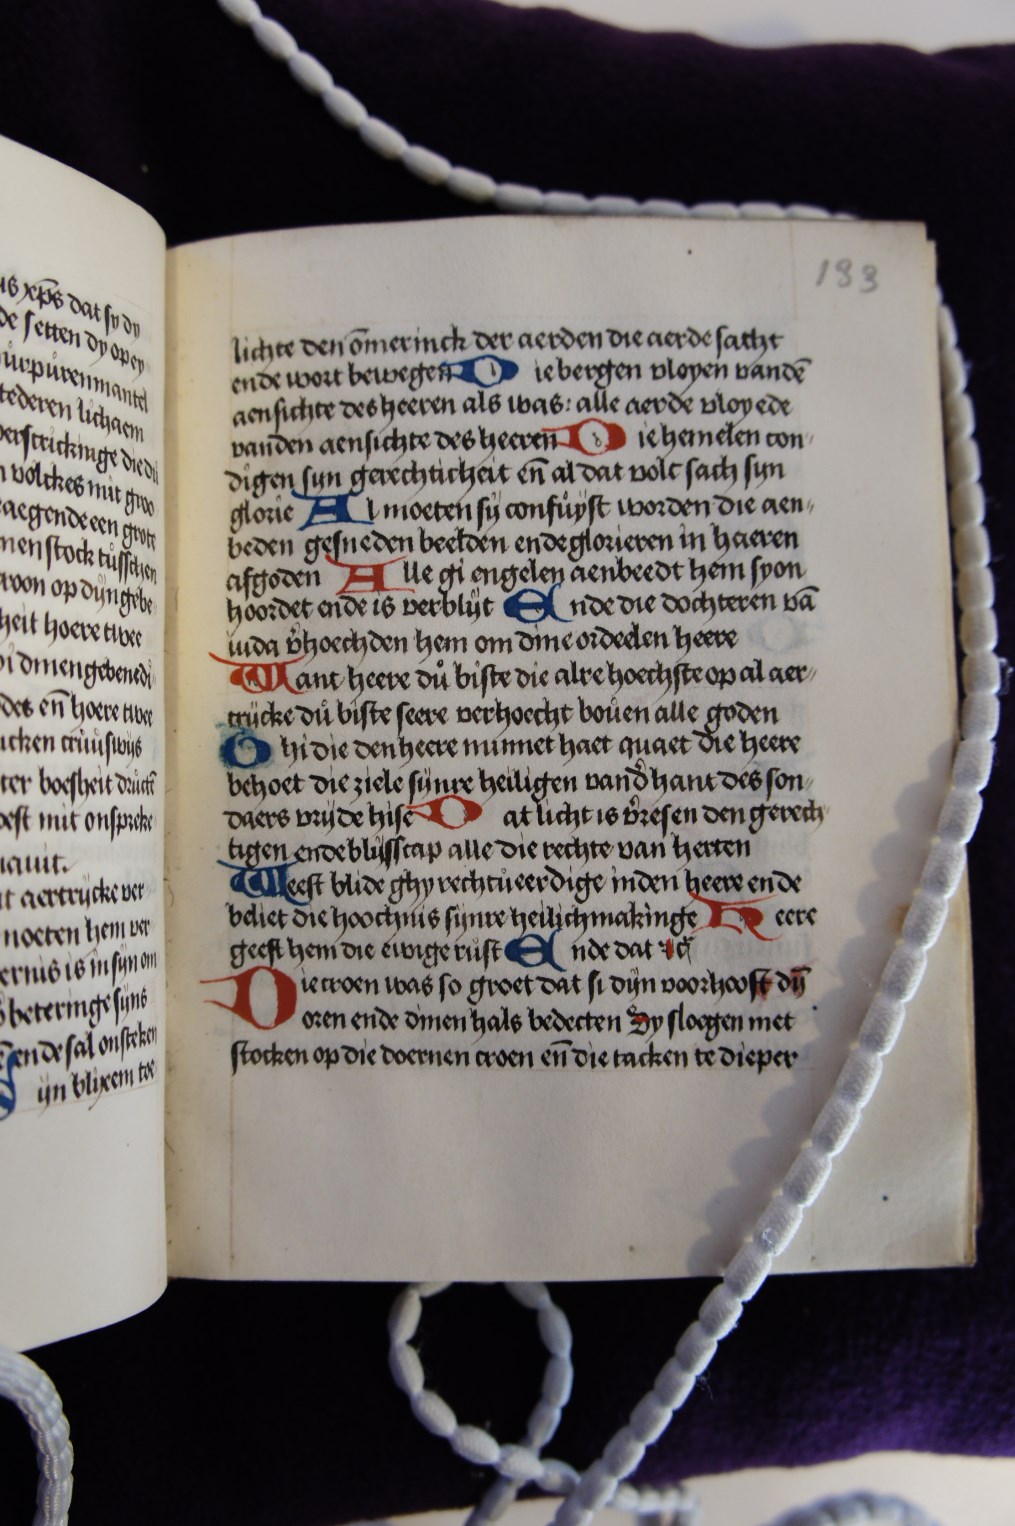 us xp̄s dat sy dy
de setten dy op ey
purpůren mantel
tederen lichaem
verstrickinge die du
n volckes mit groo
aegende een grote
men stock tůsschen
croon op dijn gebe
heit hoere twee
di dinen gebenedi
des eñ hoere twee
icken criuůswijs
ter boesheit druct̄
oest mit onspreke
uauit.
it aertrijcke ver
moeten hem ver
ernis is in sijn om
beteringe sijns
ende sal onsteken
ijn blixem toe
183
lichte den ōmerinck der aerden die aerde sacht
ende wort bewegen Die bergen vloyen vandē
aensichte des heeren als was: alle aerde vloyede
vanden aensichte des heeren Die hemelen con
digen syn gerechticheit eñ al dat volc sach syn
glorie Al moeten sij confůyst worden die aen
beden gesneden beelden ende glorieren in haeren
afgoden Alle gi engelen aenbeedt hem syon
hoordet ende is verblijt Ende die dochteren vā
iuda v̄hoechden hem om dine ordeelen heere
Want heere dů biste die alre hoechste op al aer
trijcke dů biste seere verhoecht boůen alle goden
Ghi die den heere minnet haet quaet die heere
behoet die ziele sijnre heiligen vand̄ hant des son
daers vrijde hise Dat licht is v̄resen den gerech
tigen ende blijsscap alle die rechte van herten
Weest blide ghy rechtůeerdige inden heere ende
beliet die hoochnis sijnre heilichmakinge Heere
geeft hem die ewige růst Ende dat ꝛc̄
Die croen was so groet dat si dijn voorhooft dij̄
oren ende dinen hals bedecten Sy sloegen met
stocken op die doernen croen eñ die tacken te dieper